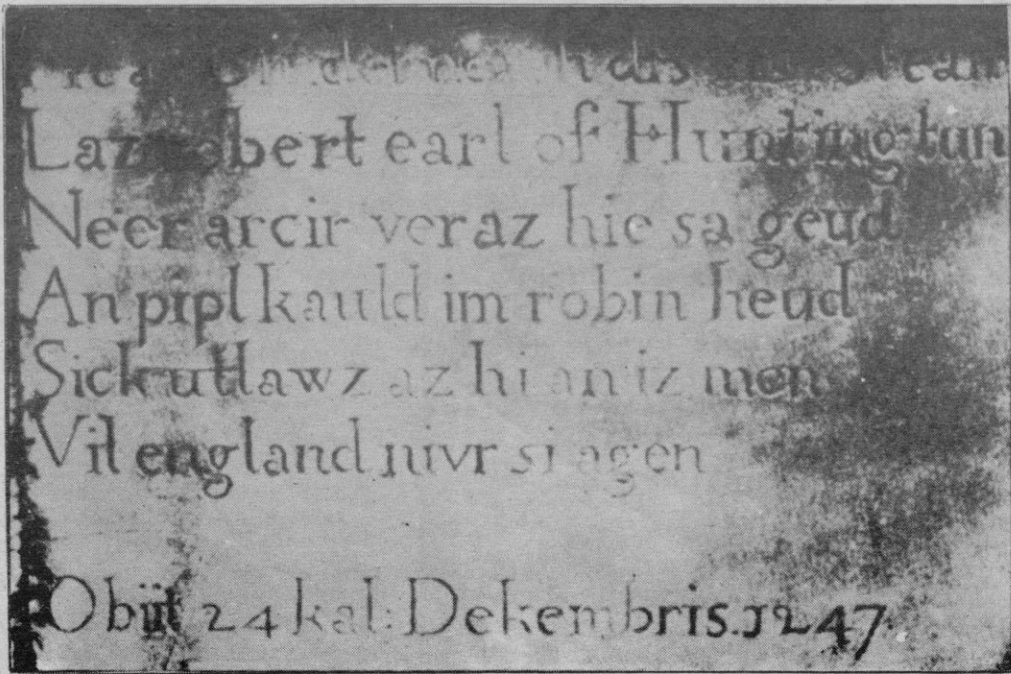 Laz robert earl of Huntingtun
Neer arcir ver az hie sa geud
An pipl kauld im robin heud
Sick utlawz az hi an iz men
Vil england nivr si agen
Obiit 24 kal: Dekembris. 1247